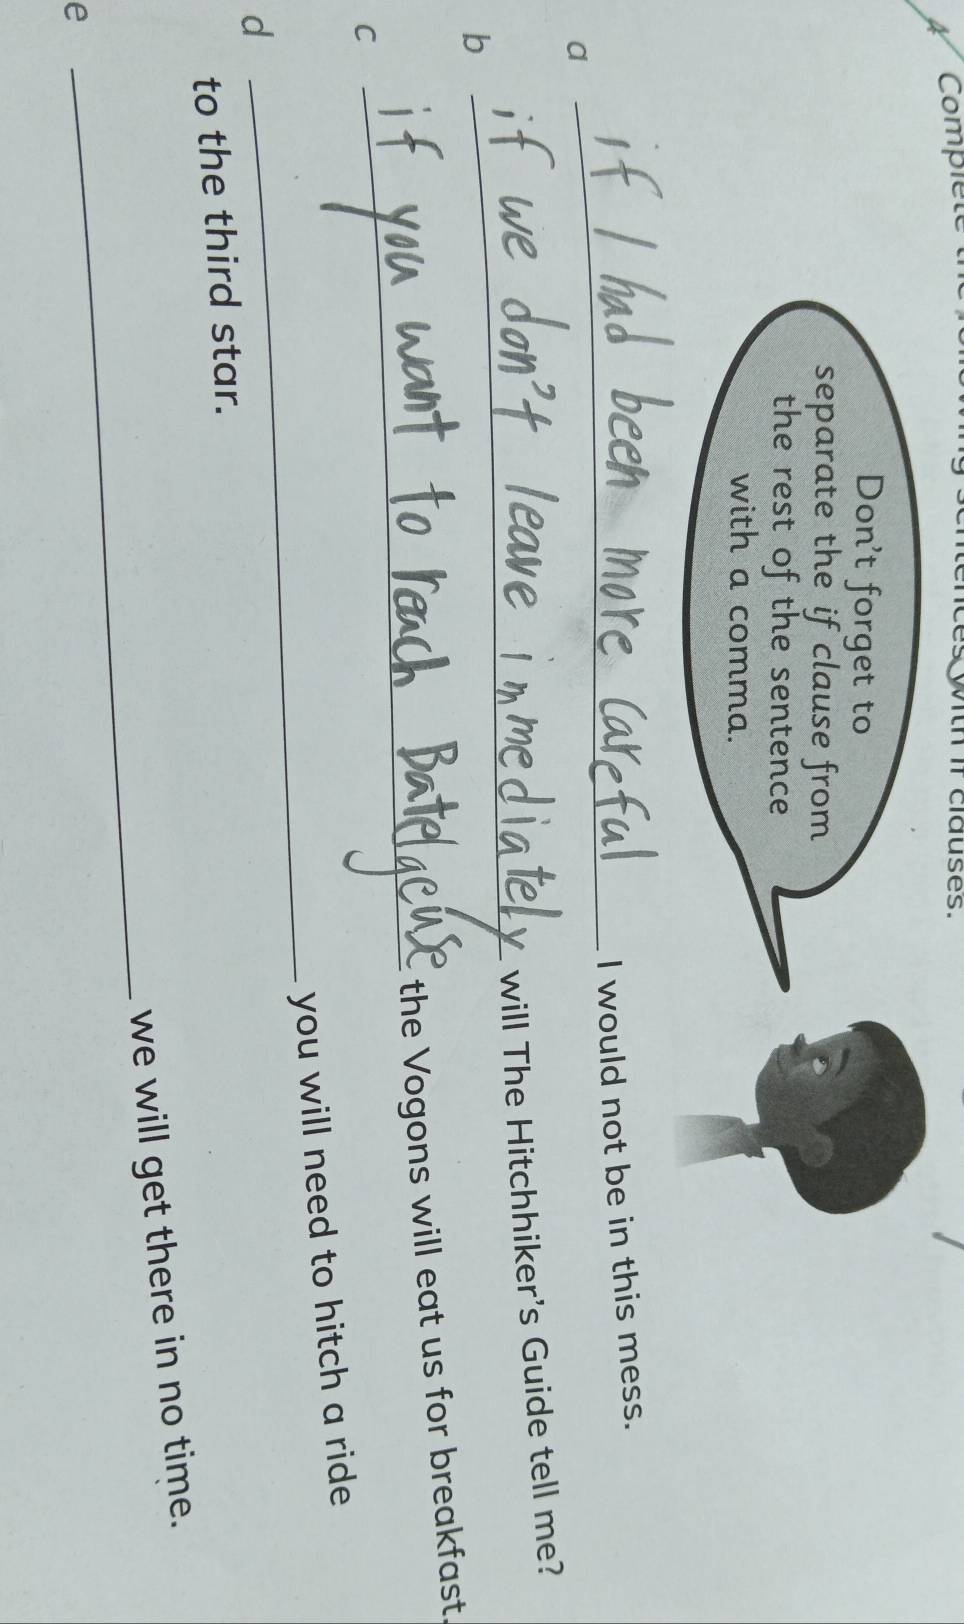 4 Complete the following sentences with if clauses.
Don't forget to
separate the if clause from
the rest of the sentence
with a comma.
a if I had been more careful I would not be in this mess.
b if we don't leave immediately will The Hitchhiker's Guide tell me?
c if you want to reach Batelgeuse the Vogons will eat us for breakfast.
d you will need to hitch a ride
to the third star.
e we will get there in no time.